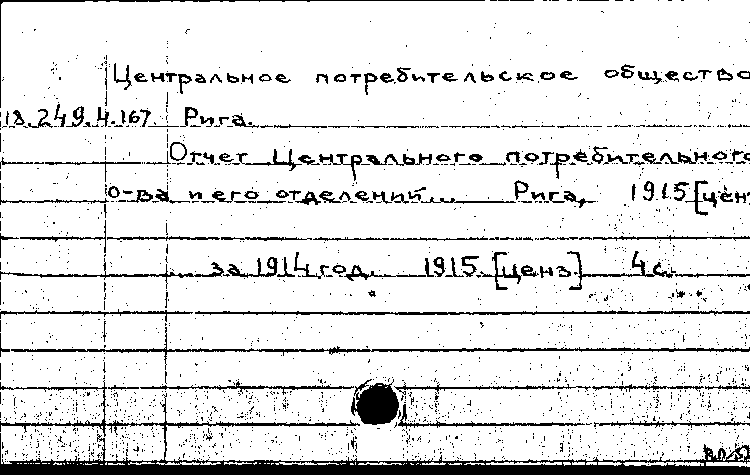 Центральное потребительское общество
18.249.4.167 Рига.
Отчет Центрального потребительного
о-ва и его отделений... Рига, 1915 [цен
... за 1914 год. 1915. [ценз.] 4 с.